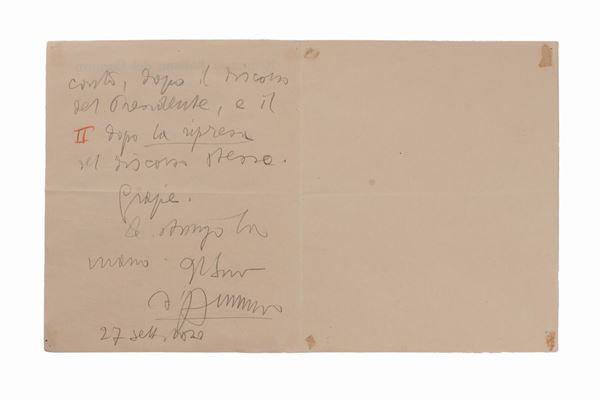 conto, dopo il discorso
del Presidente, e il
II dopo la ripresa
del discorso stesso.
Grazie.
Le stringo la
mano. Il Suo
d'Annunzio
27 sett. 1920